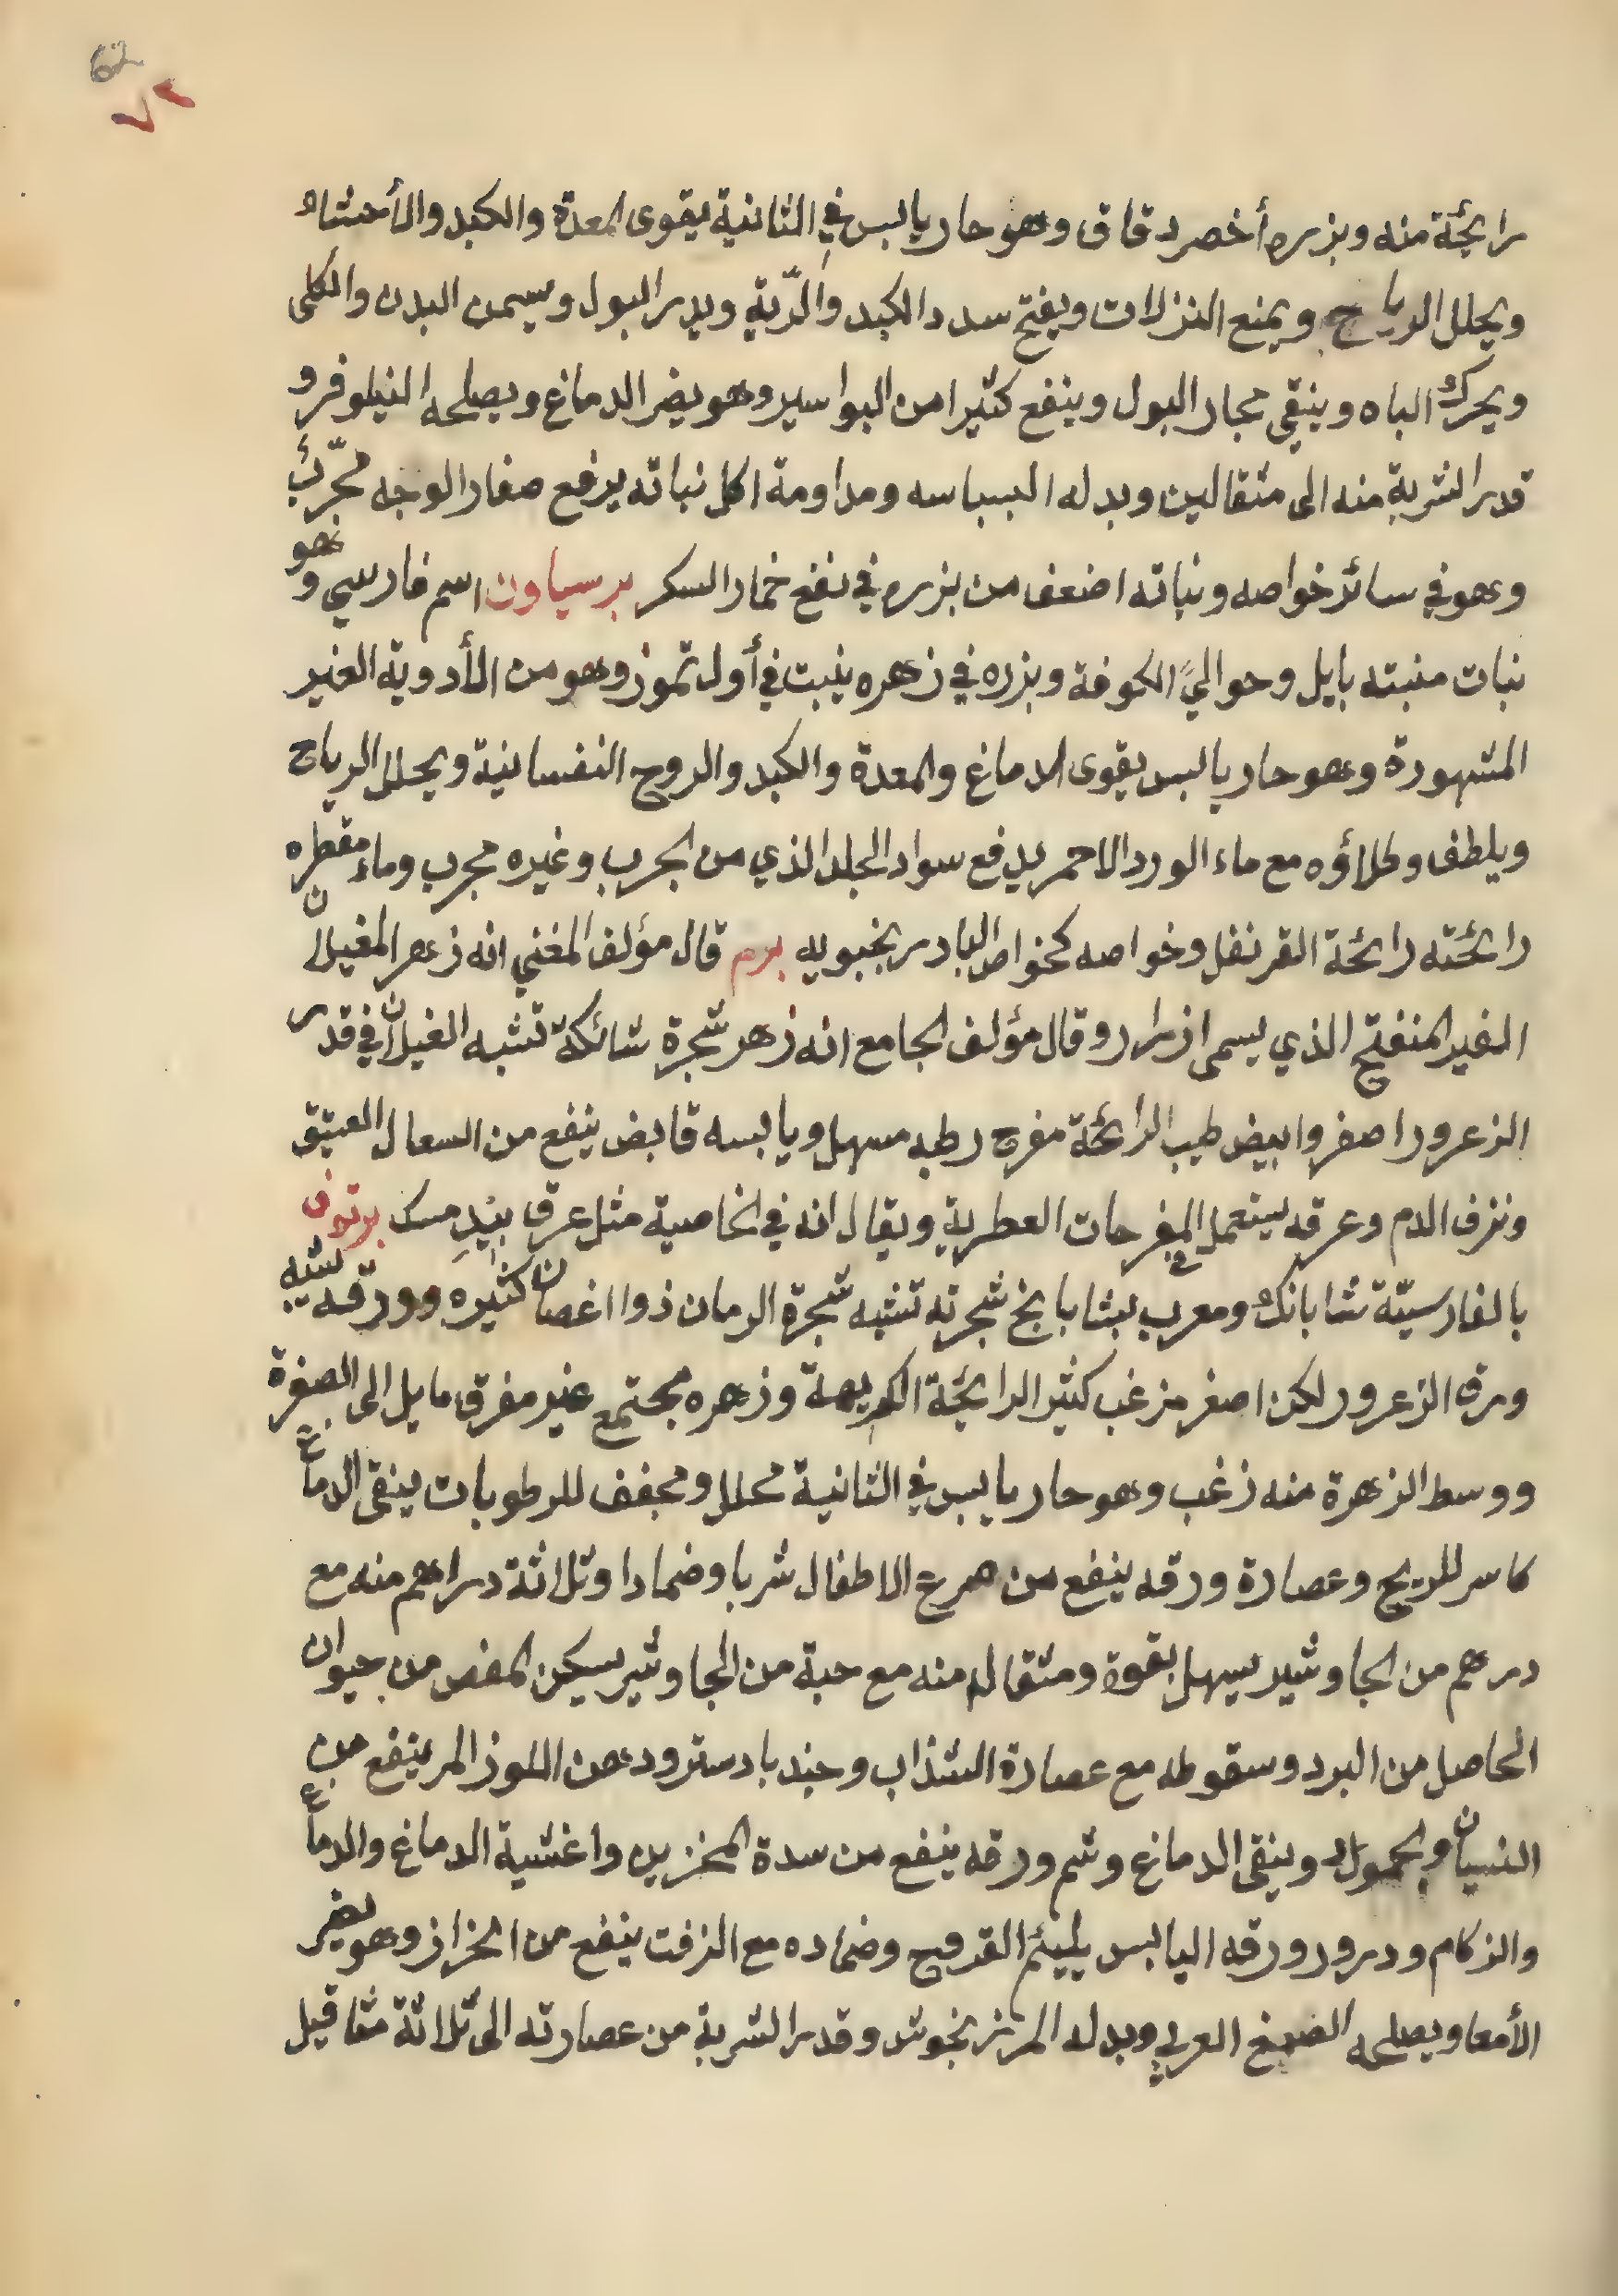 62
٧٢
رايحة منه وبزره أخصر دقاق وهو حار يابس في الثانية يقوى المعدة والكبد والأحشاء
ويحلل الرياح ويمنع النزلات ويفتح سدد الكبد والرّية ويدر البول ويسمن البدن والكلى
ويحرك الباه وينقي مجار البول وينفع كثيرا من البواسير وهو يضر الدماغ ويصلحه النيلوفر و
قدر الشربة منه الى مثقالين وبدله البسباسه ومداومة اكل نباته يرفع صفار الوجه مجرّب
وهو في سائر خواصه ونباته اضعف من بزره في نفع خمار السكر برسياون اسم فارسي وهو
نبات منبته بابل وحوالي الكوفة وبزره في زهره ينبت في أول تموز وهو من الأدوية الغير
المشهورة وهو حار يابس يقوى الدماغ والمعدة والكبد والروح النفسانية ويحلل الرياح
ويلطف وطلاؤه مع ماء الورد الاحمر يدفع سواد الجلد الذي من الجرب وغيره مجرب وماء مقطره
رائحته رائحة القرنفل وخواصه كخواص البادرنجبويه برم قال مؤلف المغني انه زهر المغيلان
الغير المنفتح الذي يسمى ازرار وقال مؤلف الجامع انه زهر شجرة شائكة تشبه الغيلان في قدر
الزعرور اصفر وابيض طيب الرائحة مفرح رطبه مسهل ويابسه قابض ينفع من السعال العتيق
ونزف الدم وعرقه يستعمل في المفرحات العطرية ويقال انه في الخاصية مثل عرق بيدِ مسك برنوف
بالفارسيّة شابانك ومعرب بشابابخ شجرته تشبه شجرة الرمان ذوا اغصان كثيره وورقه شبه
ورق الزعرور لكن اصغر مزغب كثير الرايحة الكريهة وزهره مجتمع غير مفرق مايل الى الصفرة
ووسط الزهرة منه زغب وهو حار يابس في الثانية محلل ومجفف للرطوبات ينقى الدماغ
كاسر للريح وعصارة ورقه ينفع من صرع الاطفال شربا وضمادا وثلاثة دراهم منه مع
درهم من الجاوشير يسهل بقوة ومثقال منه مع حبة من الجاوشير يسكن المغص من حيوان
الحاصل من البرد وسقوطه مع عصارة الشذاب وجندبادستر ودهن اللوز المر ينفع من
النسيان وينقى الدماغ وشم ورقه ينفع من سدة المخزين واغشية الدماغ والدماغ
والزكام ودرور ورقه اليابس يليئم القروح وضماده مع الزفت ينفع من الخزاز وهو يضر
الأمعا ويصلحه الصمغ العربي وبدله المرزنجوش وقدر الشربة من عصارته الى ثلاثة مثاقيل